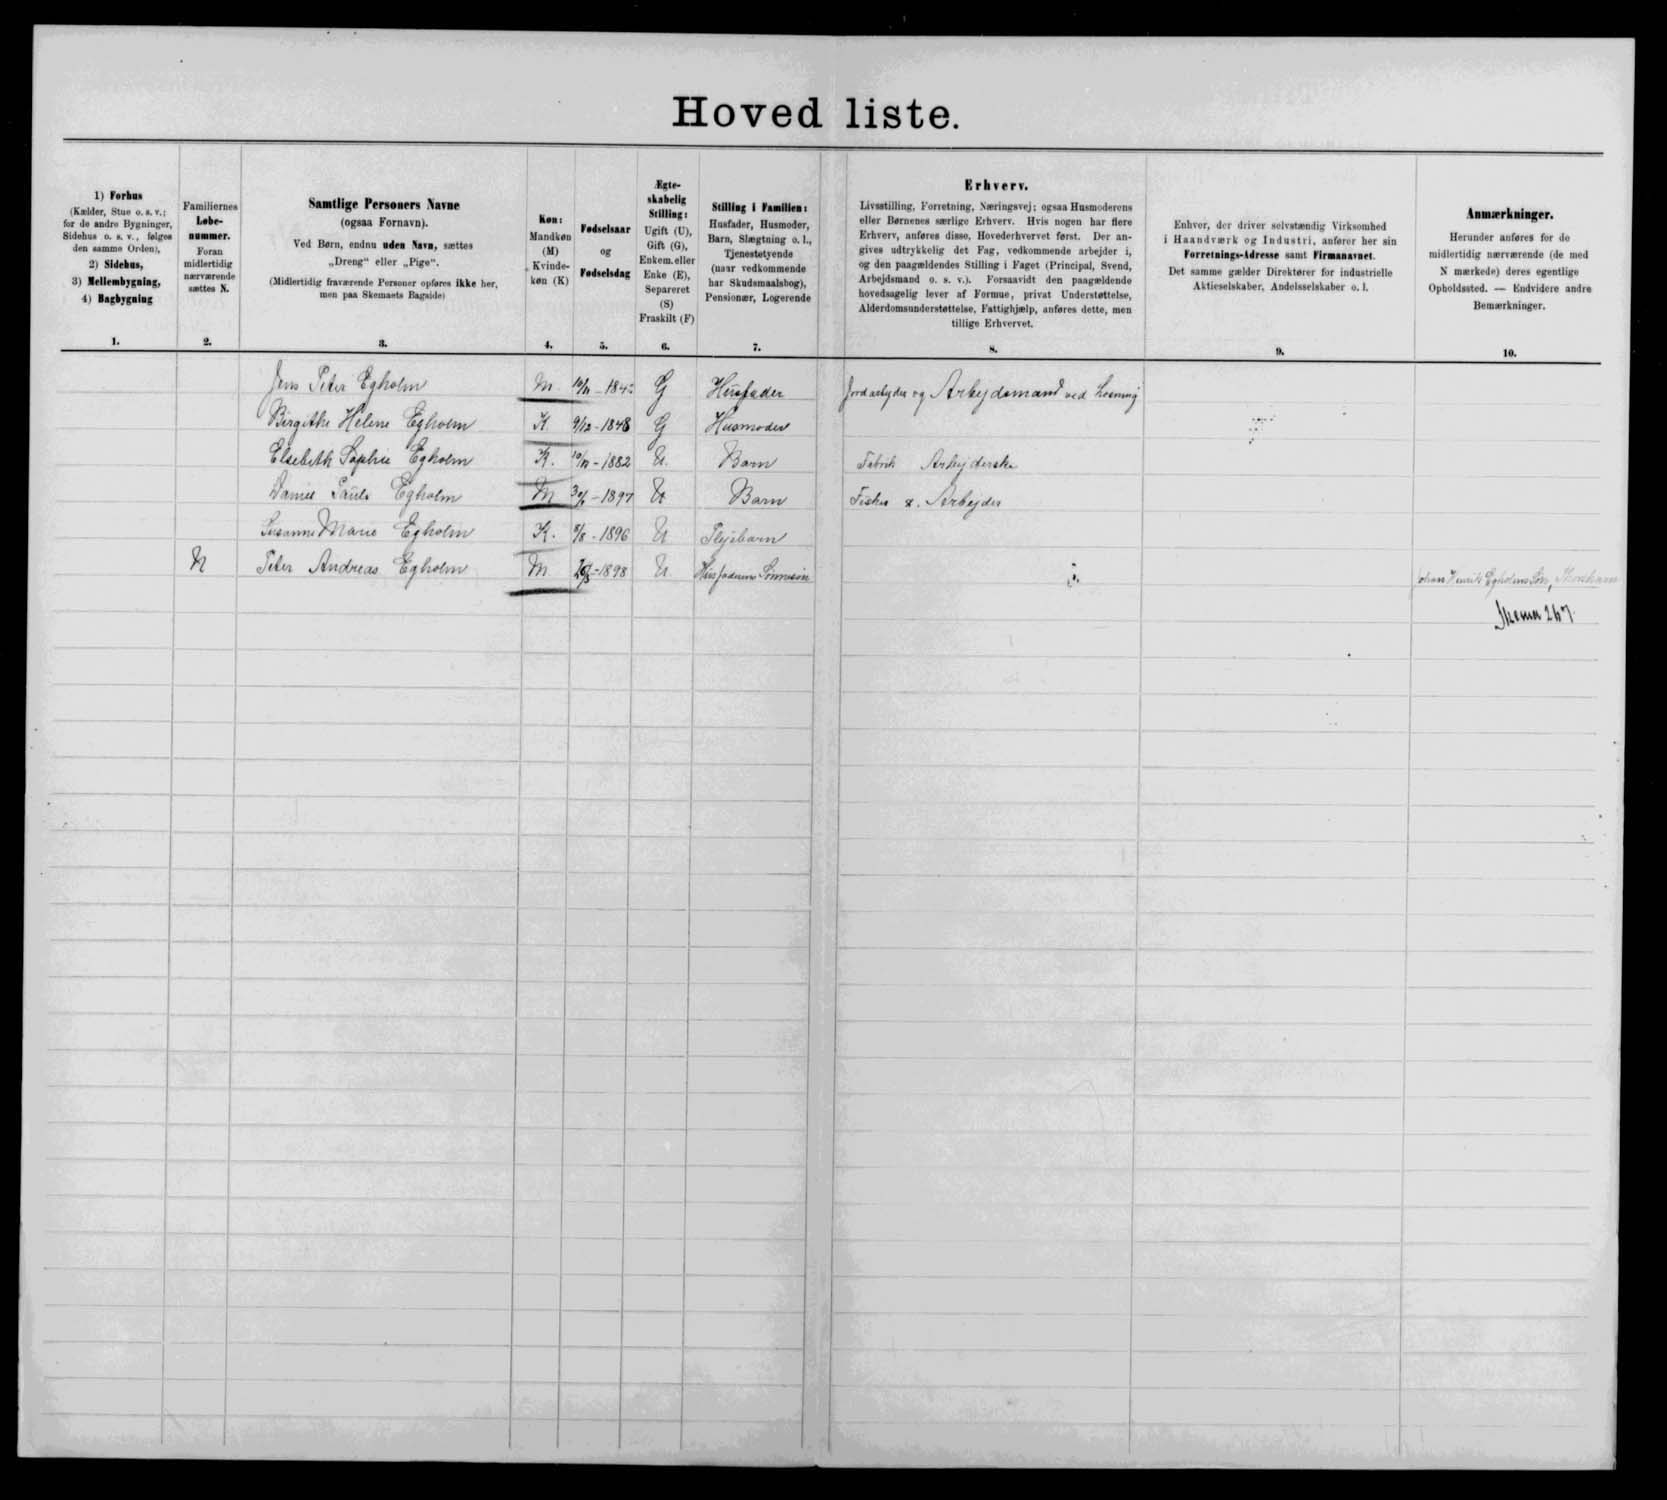 Hoved liste.
1) Forhus
(Kælder, Stue o. s. v.;
for de andre Bygninger,
Sidehus o. s. v., følges
den samme Orden),
2) Sidehus,
3) Mellembygning,
4) Bagbygning
1.
Familiernes
Løbe-
nummer.
Foran
midlertidig
nærværende
sættes N.
2.
Samtlige Personers Navne
(ogsaa Fornavn).
Ved Børn, endnu uden Navn, sættes
„Dreng“ eller „Pige“.
(Midlertidig fraværende Personer opføres ikke her,
men paa Skemaets Bagside)
3.
Køn:
Mandkøn
(M)
Kvinde-
køn (K)
4.
Fødselsaar
og
Fødselsdag
5.
Ægte-
skabelig
Stilling:
Ugift (U),
Gift (G),
Enkem. eller
Enke (E),
Separeret
(S)
Fraskilt (F)
6.
Stilling i Familien:
Husfader, Husmoder,
Barn, Slægtning o. l.,
Tjenestetyende
(naar vedkommende
har Skudsmaalsbog),
Pensionær, Logerende
7.
Erhverv.
Livsstilling, Forretning, Næringsvej; ogsaa Husmoderens
eller Børnenes særlige Erhverv. Hvis nogen har flere
Erhverv, anføres disse, Hovederhvervet først. Der an-
gives udtrykkelig det Fag, vedkommende arbejder i,
og den paagældendes Stilling i Faget (Principal, Svend,
Arbejdsmand o. s. v.). Forsaavidt den paagældende
hovedsagelig lever af Formue, privat Understøttelse,
Alderdomsunderstøttelse, Fattighjælp, anføres dette, men
tillige Erhvervet.
8.
Enhver, der driver selvstændig Virksomhed
i Haandværk og Industri, anfører her sin
Forretnings-Adresse samt Firmanavnet.
Det samme gælder Direktører for industrielle
Aktieselskaber, Andelsselskaber o. l.
9.
Anmærkninger.
Herunder anføres for de
midlertidig nærværende (de med
N mærkede) deres egentlige
Opholdssted. — Endvidere andre
Bemærkninger.
10.
Jens Peter Egholm M. G Husfader Jordarbejder og Arbejdsmand ved
Birgithe Helene Egholm K. 9/12-1848 G Husmoder
Elsebeth Sophie Egholm K. -1882 U. Barn Fabrik Arbejderske
Daniel Pauli Egholm M -1897 U Barn Fisker &. Arbejder
Susanne Marie Egholm K. 8/8-1896 U Plejebarn
N Peter Andreas Egholm M -1898 U. Husfaderens Sønnesøn Johan Henrik Egholms Søn, Thorshavn
Skema 267.